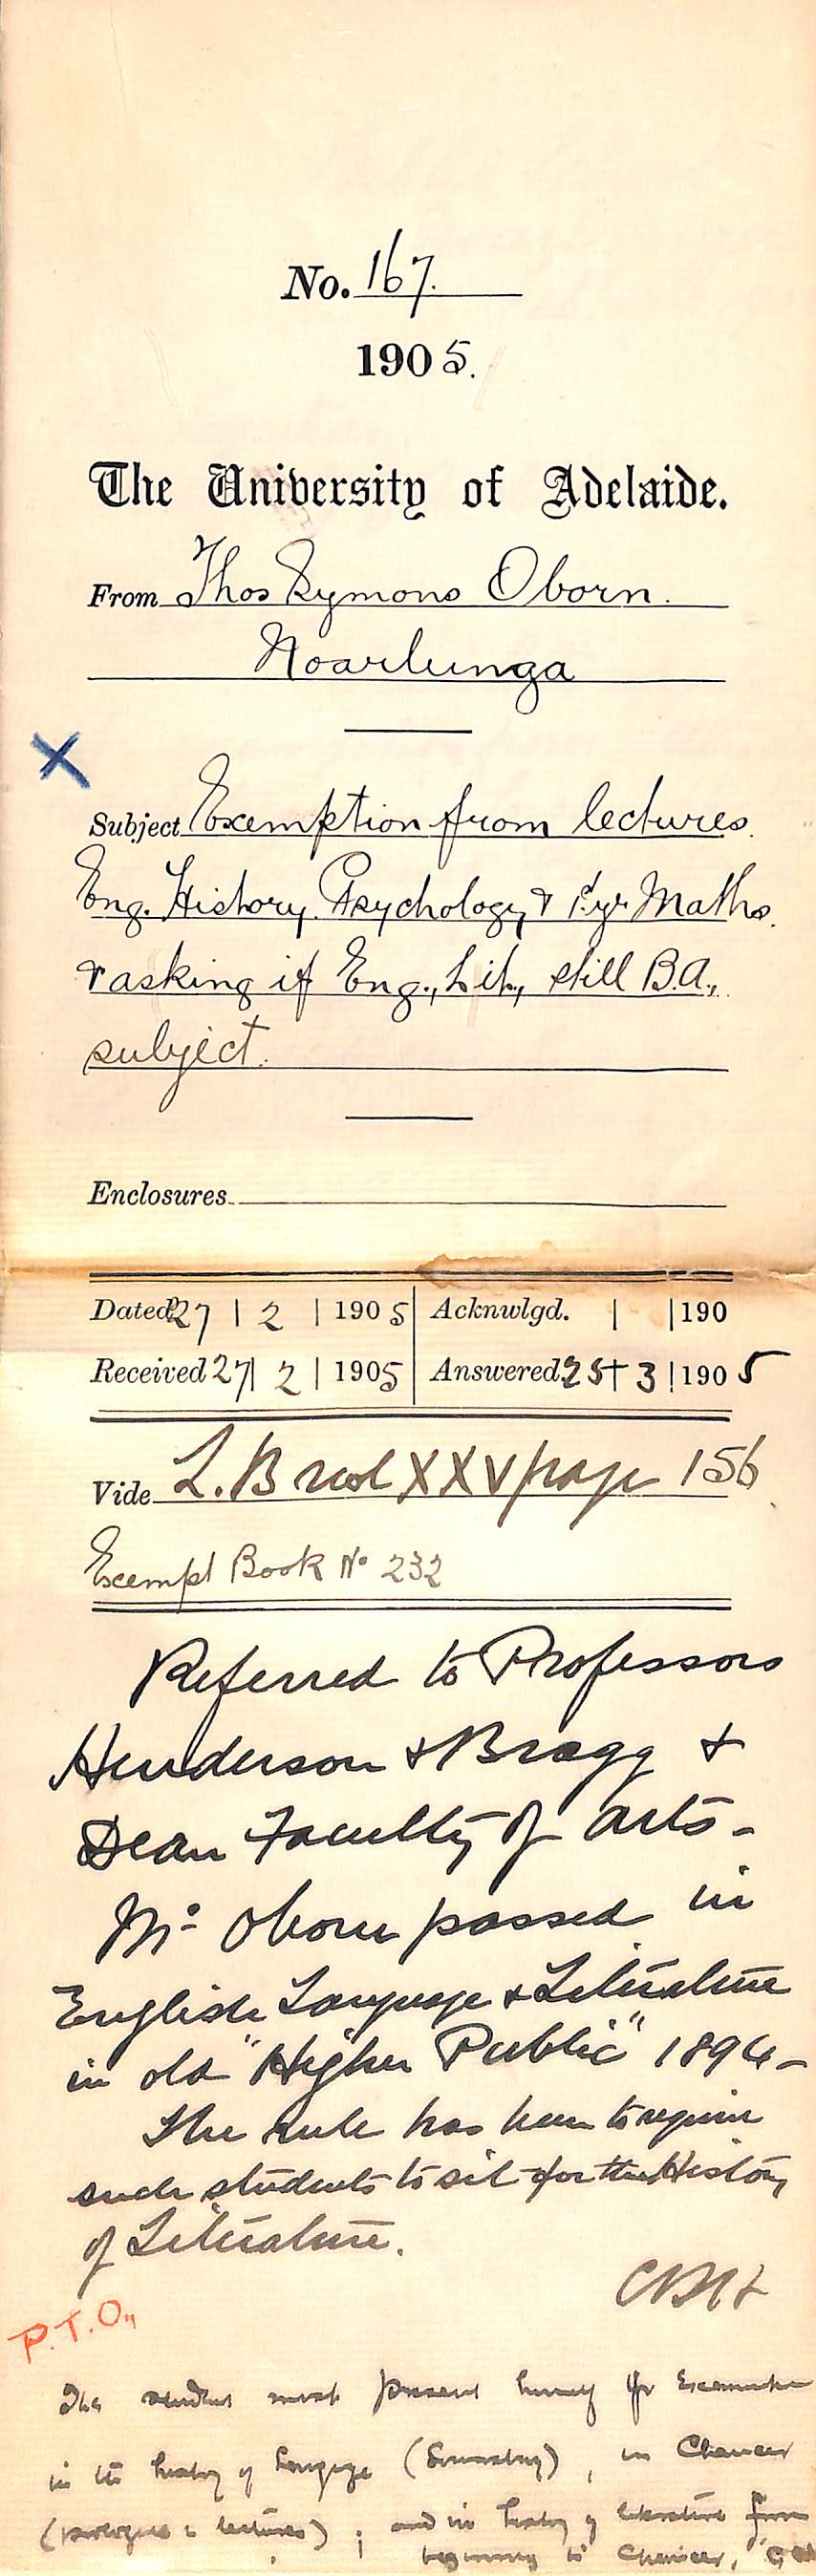 No. 167.
1905.
The University of Adelaide.
From Thos Symons Oborn.
Noarlunga
X
Subject Exemption from lectures.
Eng. History, Psychology, & 1st yr Maths.
& asking if Eng., Lit., still B.A.,
subject.
Enclosures
Dated 27 | 2 | 1905 Acknwlgd. | | 190
Received 27 | 2 | 1905 Answered 25 | 3 | 1905
Vide L.B vol XXV page 156
Exempt Book No 232
Referred to Professors
Henderson & Bragg &
Dean Faculty of Arts -
Mr Oborn passed in
English Language & Literature
in old "Higher Public" 1894 -
The rule has been to require
such students to sit for the History
of Literature.
P.T.O.,
The student must present himself for Examination
in the history of language (Lounsbury), in Chaucer
(prologue & lectures); and in history of literature from
beginning to Chaucer,